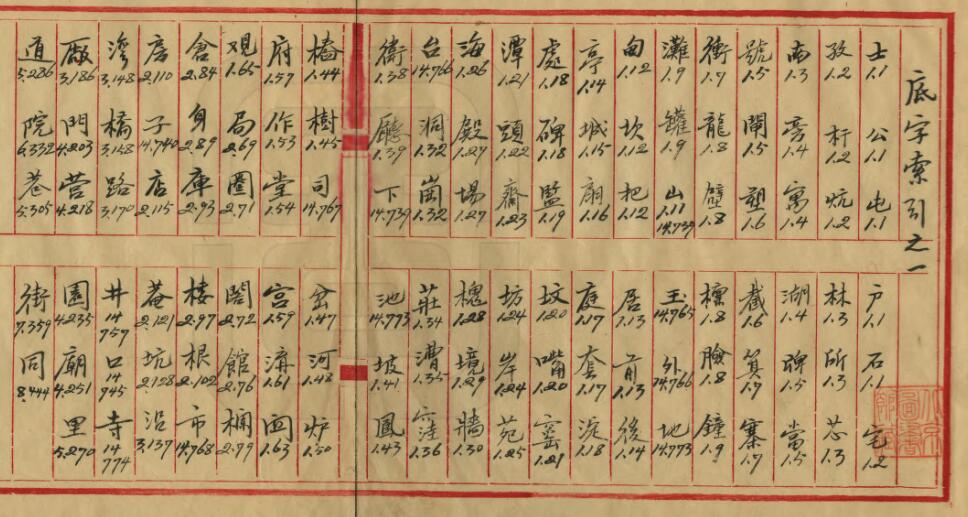 底字索引之一
士 1.1 公 1.1 屯 1.1 户 1.1 石 1.1 宅 1.2
孜 1.2 杆 1.2 坑 1.2 林 1.3 所 1.3 芯 1.3
南 1.3 1.4 寓 1.4 湖 1.4 1.5 當 1.5
號 1.5 閘 1.5 塑 1.6 截 1.6 算 1.7 寨 1.7
衝 1.7 龍 1.8 壁 1.8 標 1.8 臉 1.8 鐘 1.9
灘 1.9 罐 1.9 山 1.11 14.739 玉 14.765 外 14.766 地 14.773
甸 1.12 坎 1.12 把 1.12 居 1.13 前 1.13 後 1.14
亭 1.14 城 1.15 1.16 庭 1.17 套 1.17 淀 1.18
處 1.18 碑 1.18 監 1.19 坟 1.20 嘴 1.20 窰 1.21
潭 1.21 頭 1.22 齋 1.23 坊 1.24 岸 1.24 苑 1.25
海 1.26 殿 1.27 場 1.27 槐 1.28 境 1.29 牆 1.30
台 14.766 洞 1.32 崗 1.32 莊 1.34 漕 1.35 窪 1.36
衛 1.38 廳 1.39 下 14.739 池 14.773 坡 1.41 鳳 1.43
橋 1.44 樹 1.45 司 14.767 岔 1.47 河 1.48 炉 1.50
府 1.57 作 1.53 堂 1.54 宮 1.59 溝 1.61 1.63
观 1.65 局 2.69 圈 2.71 閣 2.72 館 2.76 欄 2.79
倉 2.84 身 2.89 庫 2.93 楼 2.97 根 2.102 市 14.768
房 2.110 子 14.740 店 2.115 菴 2.121 坑 2.128 沿 3.137
湾 3.148 橋 3.158 路 3.170 井 14 757 口 14 745 寺 14 774
廠 3.186 門 4.203 营 4.218 園 4.235 廟 4.251 里 5.270
道 5.286 院 6.332 巷 5.305 街 7.359 同 8.444